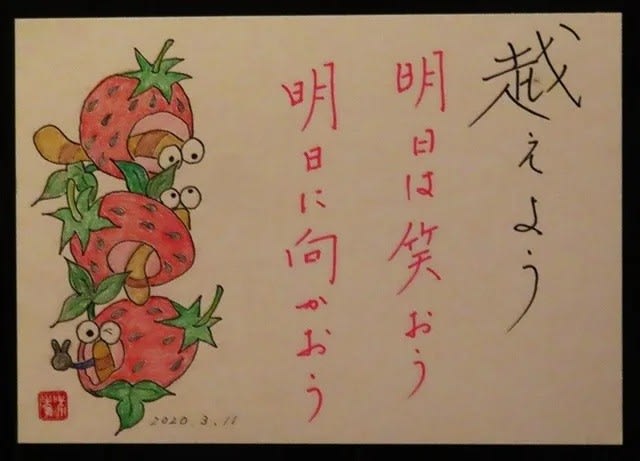 越えよう
明日は笑おう
明日に向かおう
2020.3.11